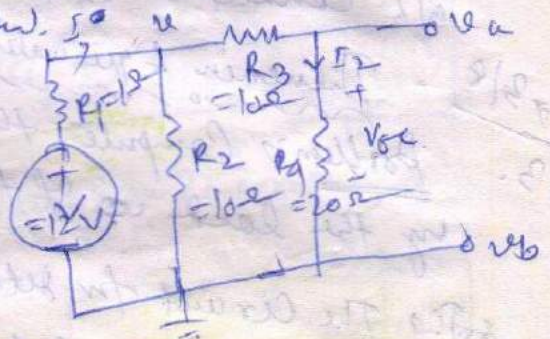 I
v
Va
R3
=10Ω
I2
+
R1=1Ω
R2
=10Ω
R4
=20Ω
Voc
-
+
=12V
Vb